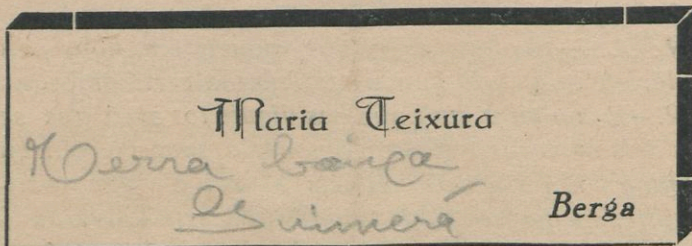 Maria Teixura
Terra baixa
Guimerà
Berga